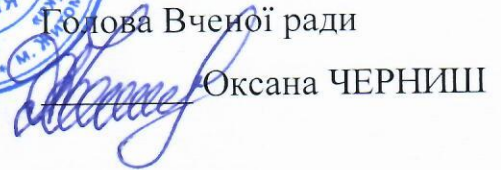 Голова Вченої ради
Оксана ЧЕРНИШ